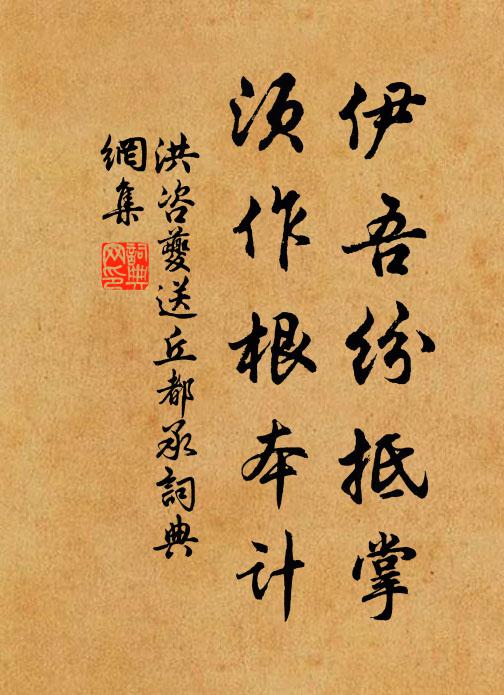 伊吾纷抵掌
须作根本计
洪咨夔送丘都承詞典
網集
詞典網印